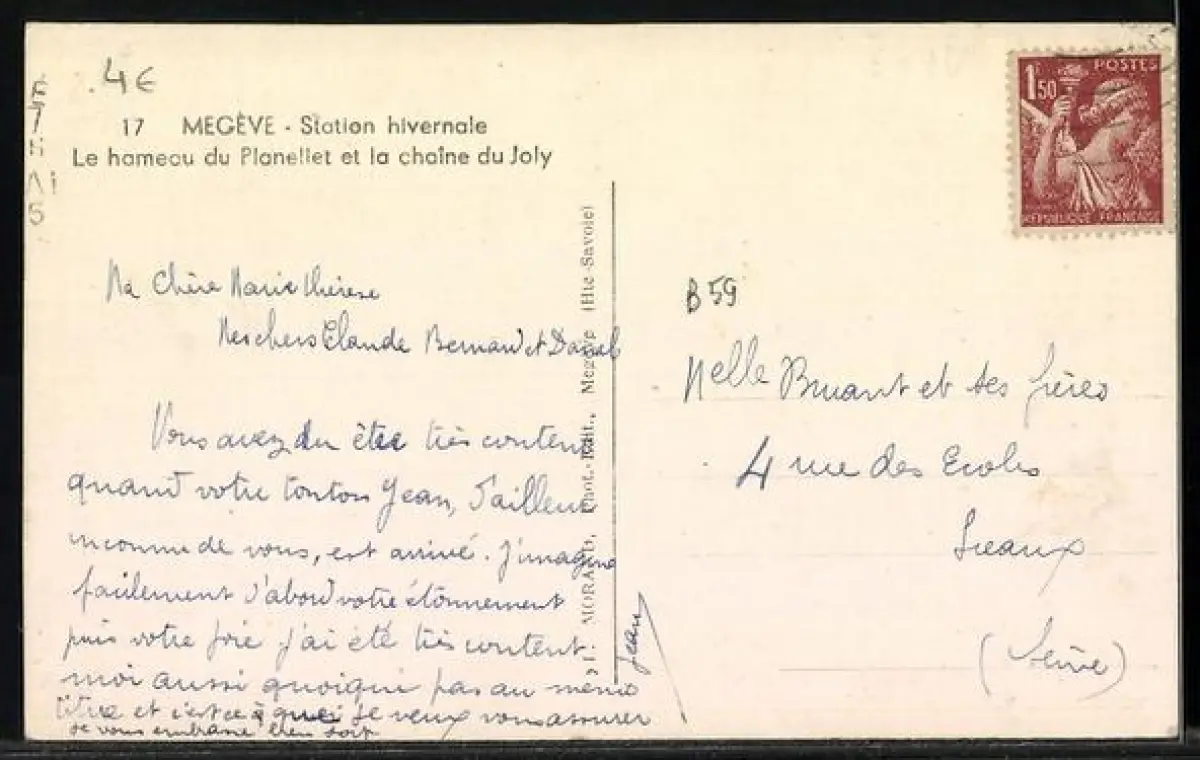 4€
17 MEGÈVE - Station hivernale
Le hameau du Planellet et la chaîne du Joly
Ma Chère Marie Thérèse
Mes chers Claude Bernard et Daniel
Vous avez du être très contents
quand votre tonton Jean, d'ailleurs
inconnu de vous, est arrivé. J'imagine
facilement d'abord votre étonnement
puis votre joie j'ai été très content
moi aussi quoique pas au même
titre et c'est ce que je veux vous assurer
je vous embrasse bien fort
Jean
MORAND, Phot.-Edit., Megève (Hte-Savoie)
1F50
POSTES
REPUBLIQUE FRANÇAISE
B 59
Melle Bruant et ses frères
4 rue des Ecoles
Sceaux
(Seine)